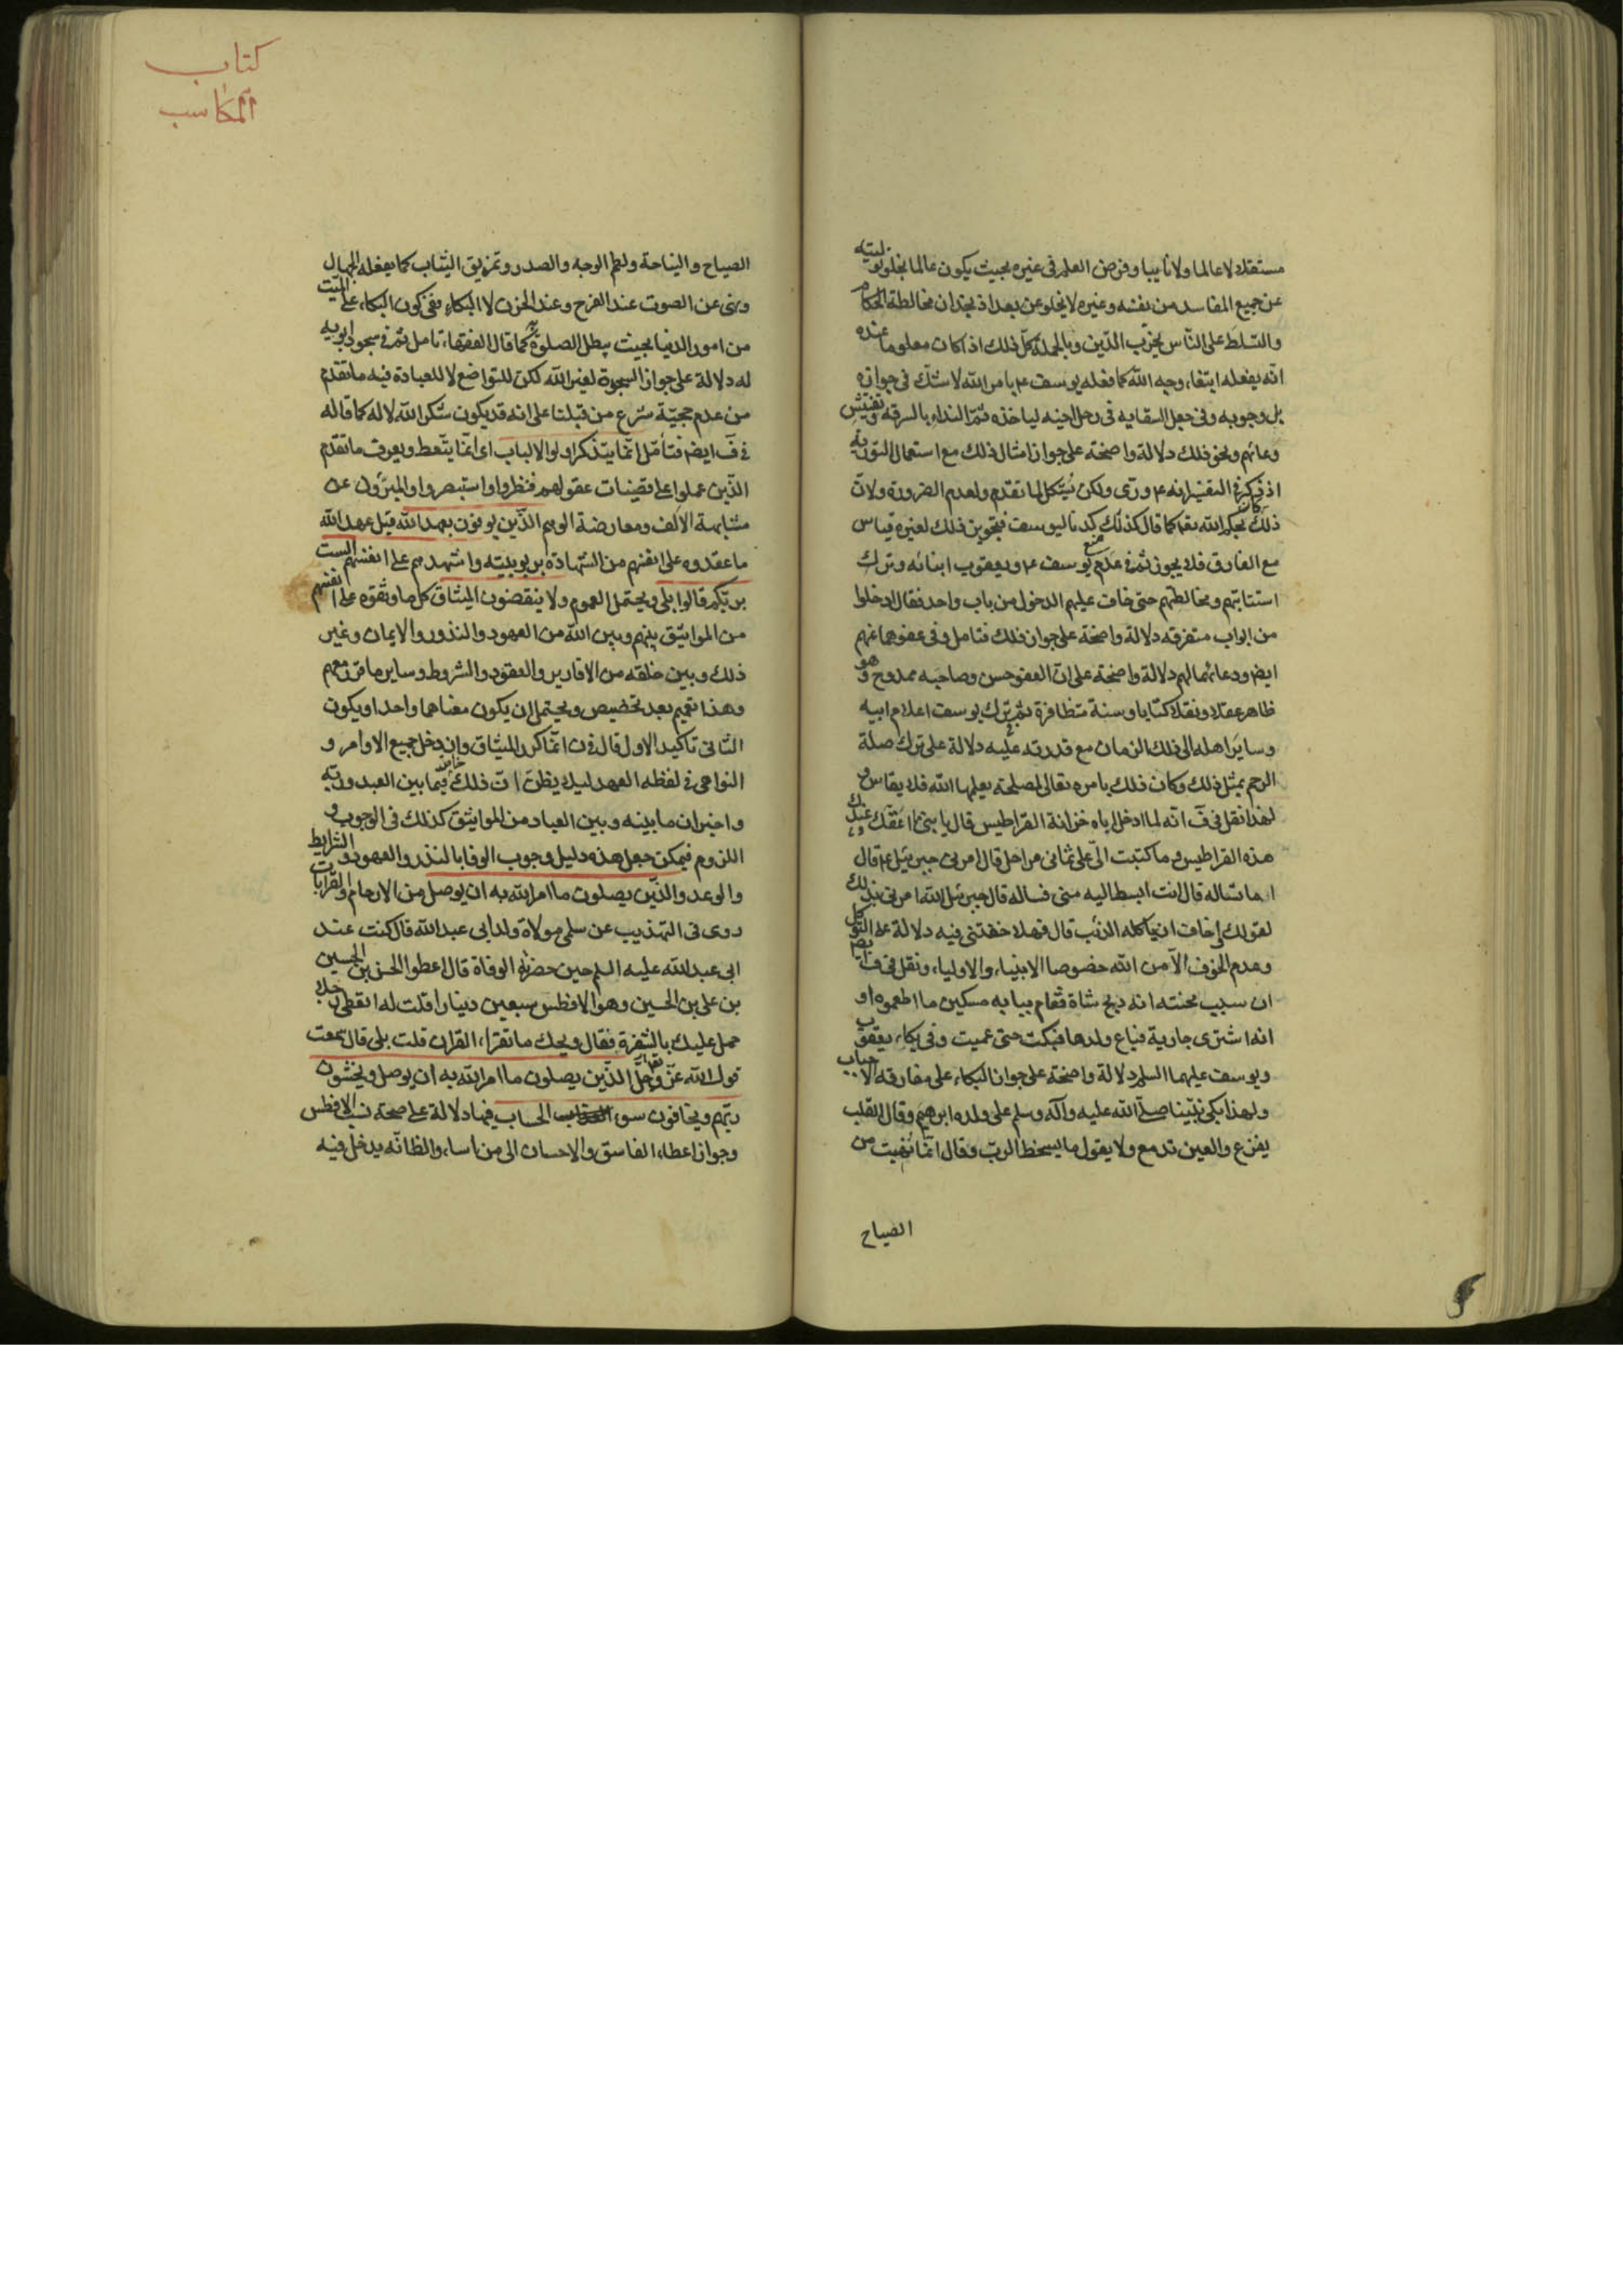 مستقلا لا عالما ولا نايبا وفرض العلم فى غيره بحيث يكون عالما بخلو نيته
عن جميع المفاسد من نفسه وغيره لا يخلو عن بعد اذ نجد ان مخالطة الحكام
والتسلط على الناس يخرب الدين وبالجملة كل ذلك اذا كان معلوما عنده
انه يفعله ابتغاء وجه الله كما فعله يوسف ع بامر الله لا شك فى جوازه
بل وجوبه وفى جعل السقايه فى رحل اخيه لياخذه ثم النداء بالسرقة وتفتيش
وعائهم ونحو ذلك دلالة واضحة على جواز امثال ذلك مع استعمال التورية
اذ ذكر فى التفسير انه ع ورى ولكن يشكل لما تقدم ولعدم الضرورة ولان
ذلك كان بحكم الله تعا كما قال كذلك كدنا ليوسف فتجويز ذلك لغيره قياس
مع الفارق فلا يجوز ثم فى علم يوسف ع ويعقوب ابنائه وترك
استتابتهم ومخالطتهم حتى خاف عليهم الدخول من باب واحد فقال ادخلوا
من ابواب متفرقه دلالة واضحة على جواز ذلك فتامل وفى عفوهما عنهم
ايضا ودعائهما لهم دلالة واضحة على ان العفو حسن وصاحبه ممدوح وهو
ظاهر عقلا ونقلا كتابا وسنة متظافرة ثم ترك يوسف اعلام ابيه
وساير اهله الى ذلك الزمان مع قدرته عليه دلالة على ترك صلة
الرحم بمثل ذلك وكان ذلك بامره تعالى لمصلحة يعلمها الله فلا يقاس و
لهذا نقل فى ف انه لما ادخل اباه خزانة القراطيس قال يا بنى ما اعقك عندك
هذه القراطيس وما كتبت الى على ثمانى مراحل قال امرنى جبرئيل ع قال
اما تساله قال انت ابسط اليه منى فساله قال جبرئيل الله امرنى بذلك
لقولك اخاف ان ياكله الذئب قال فهلا خفتنى فيه دلالة على التوكل
وعدم الخوف الا من الله خصوصا الانبياء والاولياء ونقل فى ف ايضا
ان سبب محنته انه ذبح شاة فقام ببابه مسكين ما اطعموه او
انه اشترى جارية فباع ولدها فبكت حتى عميت وفى بكاء يعقوب
ويوسف عليهما السلم دلالة واضحة على جواز البكاء على مفارقة الاحباب
ولهذا بكى نبينا صلى الله عليه وآله وسلم على ولده ابرهيم وقال القلب
يفزع والعين تدمع ولا يقول ما يسخط الرب وقال انما نهيت من
الصياح
كتاب
المكاسب
الصياح والنياحة ولطم الوجه والصدر وتمزيق الثياب كما يفعله الجهال
ونهى عن الصوت عند الفرح وعند الحزن لا البكاء ففى كون البكاء على الميت
من امور الدنيا بحيث يبطل الصلوة به كما قال الفقهاء تامل ثم فى سجود ابويه
له دلالة على جواز السجدة لغير الله لكن للتواضع لا للعبادة فيه ما تقدم
من عدم حجية شرع من قبلنا على انه قد يكون شكرا لله لا له كما قاله
فى ف ايضا فتامل انما يتذكر اولوا الالباب اى انما يتعظ ويعرف ما تقدم
الذين عملوا على قضيات عقولهم فنظروا واستبصروا والمبرؤن عن
مشايعة الالف ومعارضة الوهم الذين يوفون بعهد الله قيل عهد الله
ما عقدوه على انفسهم من الشهادة بربوبيته واشهدهم على انفسهم الست
بربكم قالوا بلى ويحتمل العموم ولا ينقضون الميثاق كل ما وثقوه على انفسهم
من المواثيق بينهم وبين الله من العهود والنذور والايمان وغير
ذلك وبين خلقه من الاقارير والعقود والشروط وساير ما قرر معهم
وهذا تعميم بعد تخصيص ويحتمل ان يكون معناهما واحدا ويكون
الثانى تاكيد الاول قال فى ن انما كرر الميثاق وان دخل جميع الاوامر و
النواهى فى لفظه العهد ليلا يظن ان ذلك خاص فيما بين العبد وربه
واخبر ان ما بينه وبين العباد من المواثيق كذلك فى الوجوب و
اللزوم فيمكن جعل هذه دليل وجوب الوفا بالنذر والعهود والشرايط
والوعد والذين يصلون ما امر الله به ان يوصل من الارحام والقرابات
روى فى التهذيب عن سلمى مولاة ولد ابى عبد الله قال كنت عند
ابى عبد الله عليه السلم حين حضرته الوفاة قال اعطوا الحسن بن الحسين
بن على بن الحسين وهو الافطس سبعين دينارا قلت له اتعطى رجلا
حمل عليك بالشفرة فقال ويحك ما تقراء القران قلت بلى قال سمعت
قول الله عز وجل الذين يصلون ما امر الله به ان يوصل ويخشون
ربهم ويخافون سوء الحساب فيها دلالة على صحة نسب الافطس
وجواز اعطاء الفاسق والاحسان الى من اساء والظ انه يدخل فيه